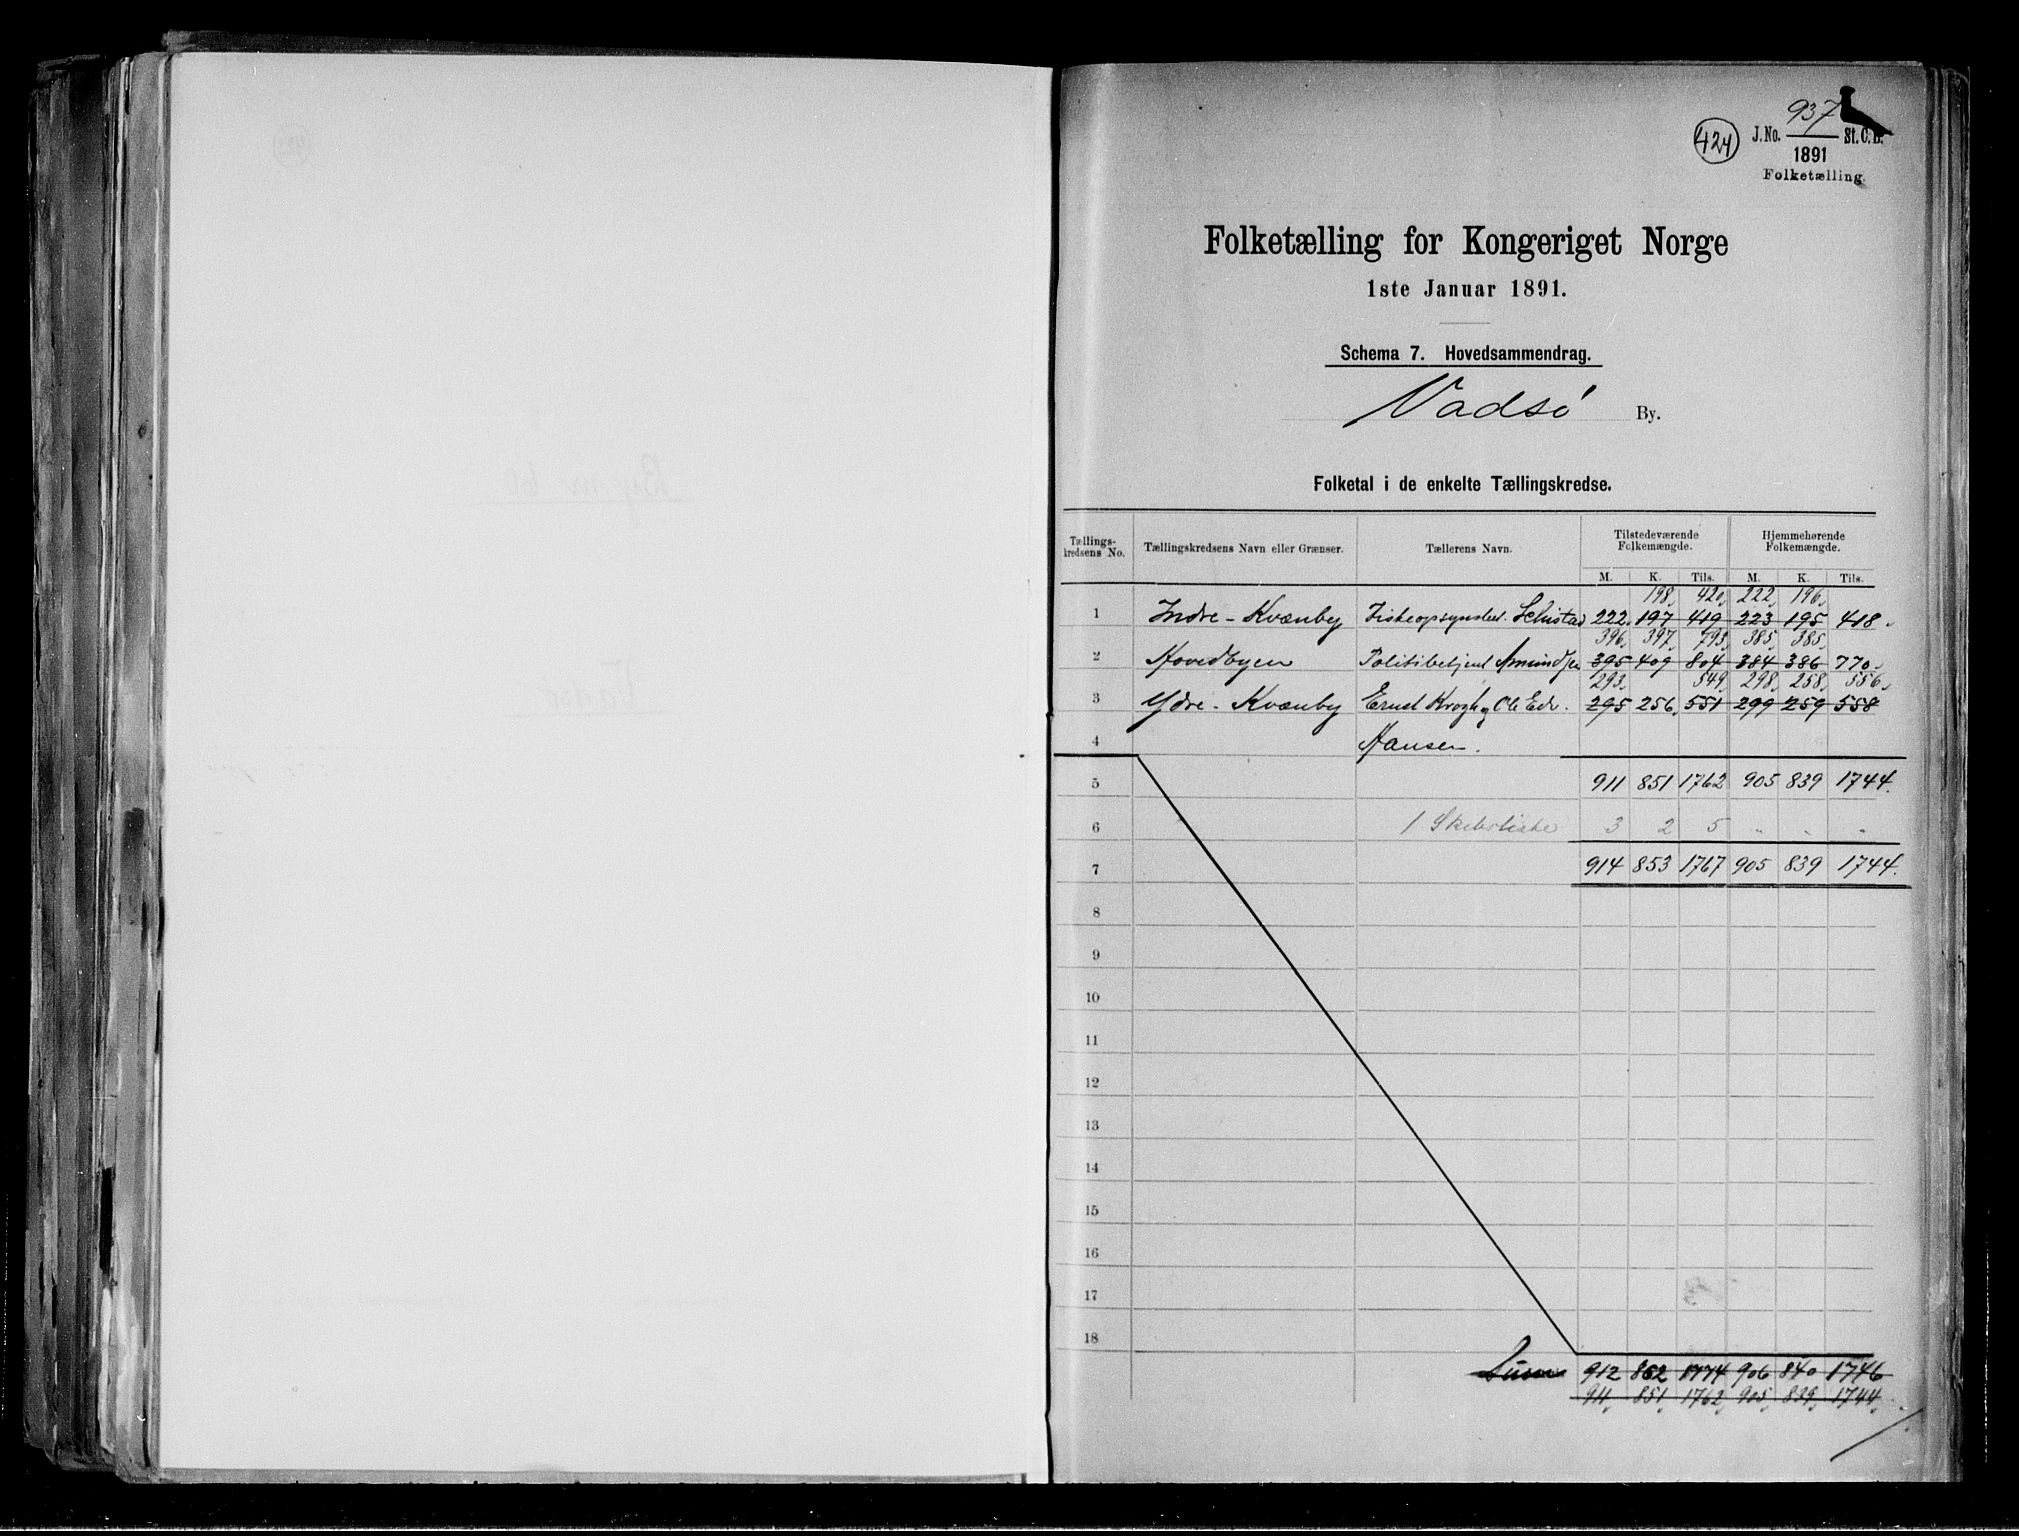 937
424 J.No. St.C.B.
1891
Folketælling.
Folketælling for Kongeriget Norge
1ste Januar 1891.
Schema 7. Hovedsammendrag.
Vadsø By.
Folketal i de enkelte Tællingskredse.
Tællings-kredsens No. Tællingskredsens Navn eller Grænser. Tællerens Navn. Tilstedeværende Folkemængde. Hjemmehørende Folkemængde.
M. K. Tils. M. K. Tils.
198, 420, 222, 196,
1 Indre-Kvænby Fiskeopsynsbet. Schistad 222, 197 419 223 195 418,
396, 397, 793, 385, 385,
2 Hovedbyen Politibetjent Amundsen 395 409 804 384 386 770,
293, 549, 298, 258, 556,
3 Ydre-Kvænby Ernst Krogh og Ole Edv. 295 256, 551 299 259 558
4 Hansen.
5 911 851 1762 905 839 1744.
6 1 Skibsliste 3 2 5 " " "
7 914 853 1767 905 839 1744.
8
9
10
11
12
13
14
15
16
17
18
Sum 912 862 1774 906 840 1746
911, 851, 1762, 905, 839, 1744,